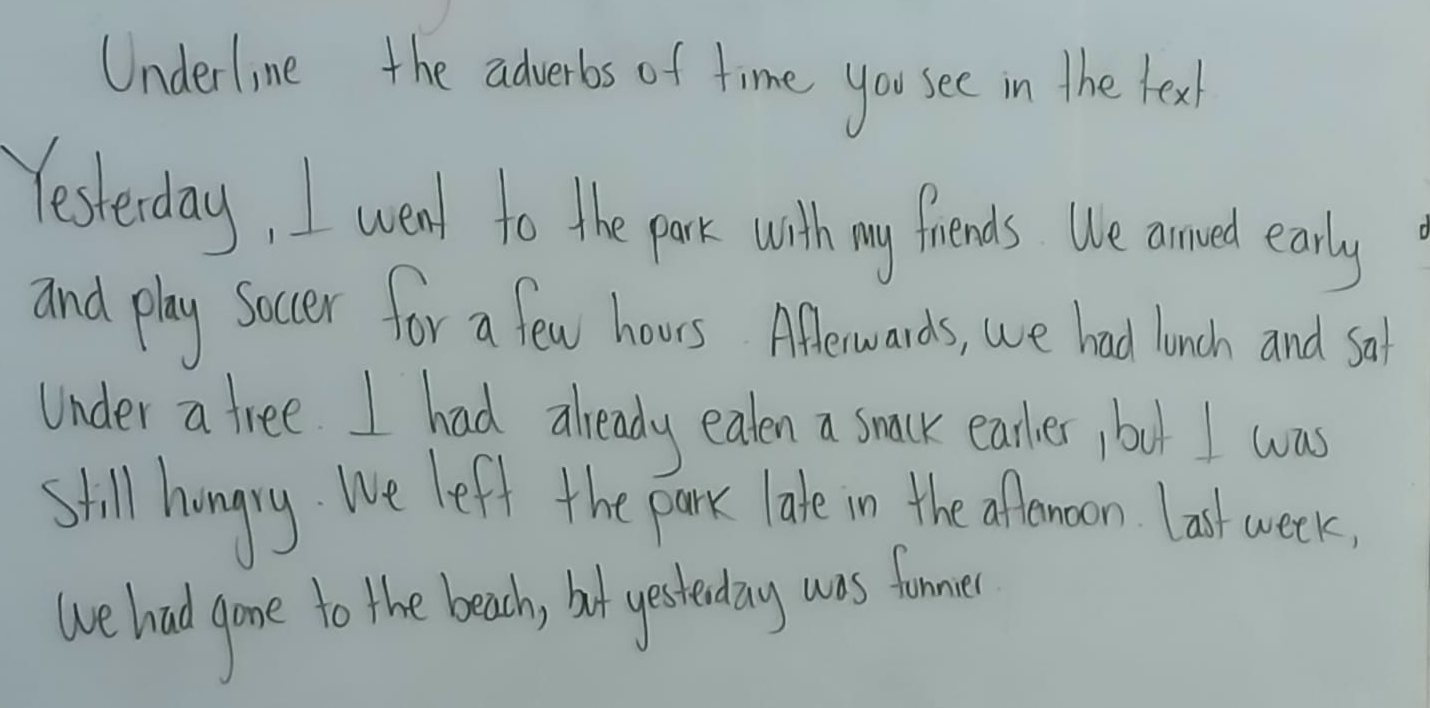 Underline the adverbs of time you see in the text
Yesterday, I went to the park with my friends. We arrived early
and play soccer for a few hours. Afterwards, we had lunch and sat
Under a tree. I had already eaten a snack earlier, but I was
still hungry. We left the park late in the afternoon. Last week,
we had gone to the beach, but yesterday was funnier.